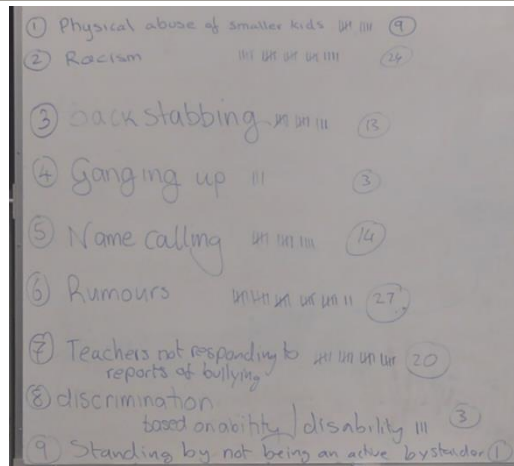 ① Physical abuse of smaller kids 卌 |||| ⑨
② Racism 卌 卌 卌 卌 |||| 24
③ Backstabbing 卌 卌 ||| 13
④ Ganging up ||| ③
⑤ Name calling 卌 卌 |||| 14
⑥ Rumours 卌 卌 卌 卌 卌 || 27
⑦ Teachers not responding to 卌 卌 卌 卌 20
reports of bullying
⑧ discrimination
based on ability / disability ||| ③
⑨ Standing by not being an active bystander ①